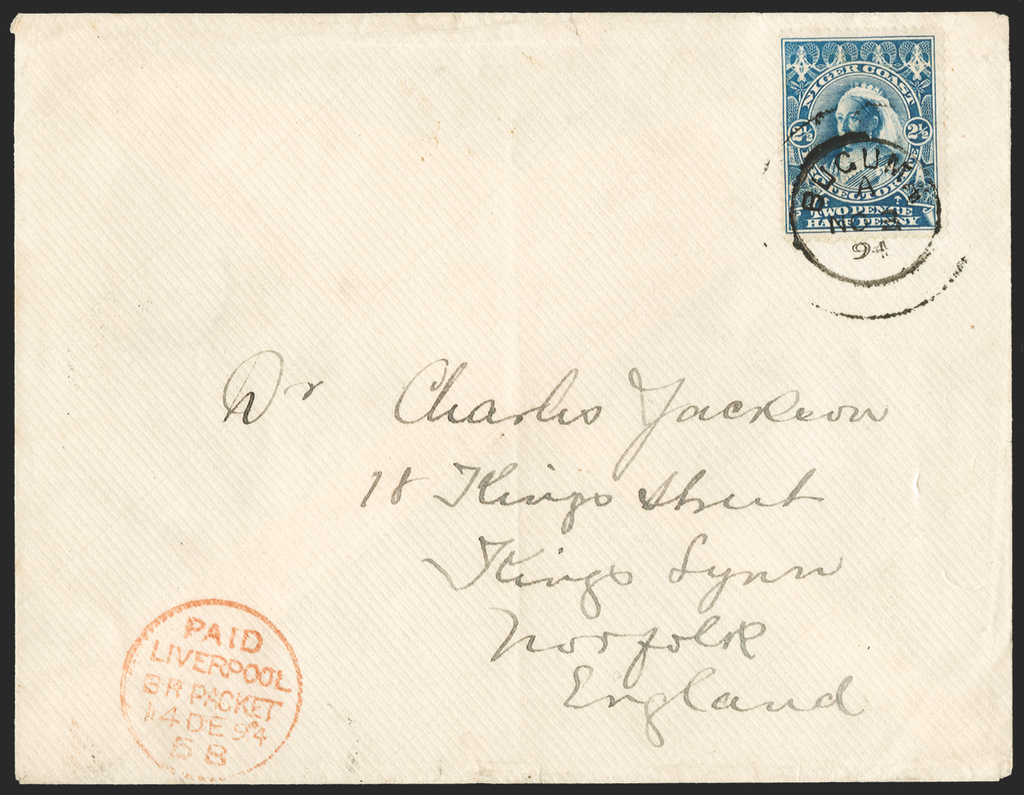 NIGER COAST
2½ 2½
TWO PENCE
HALF PENNY
BUGUMA
A
NO
94
Dr Charles Jackson
18 Kings Street
Kings Lynn
Norfolk
England
PAID
LIVERPOOL
BR PACKET
14 DE 94
5 B